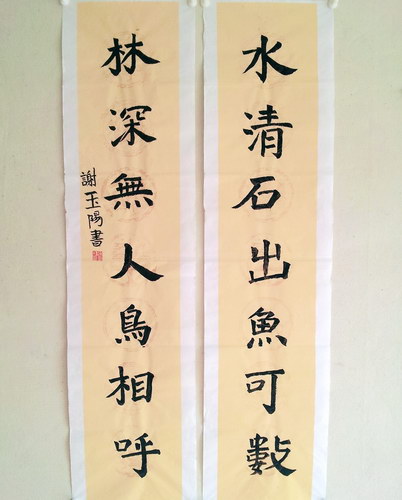 水清石出魚可數
林深無人鳥相呼
謝玉陽書